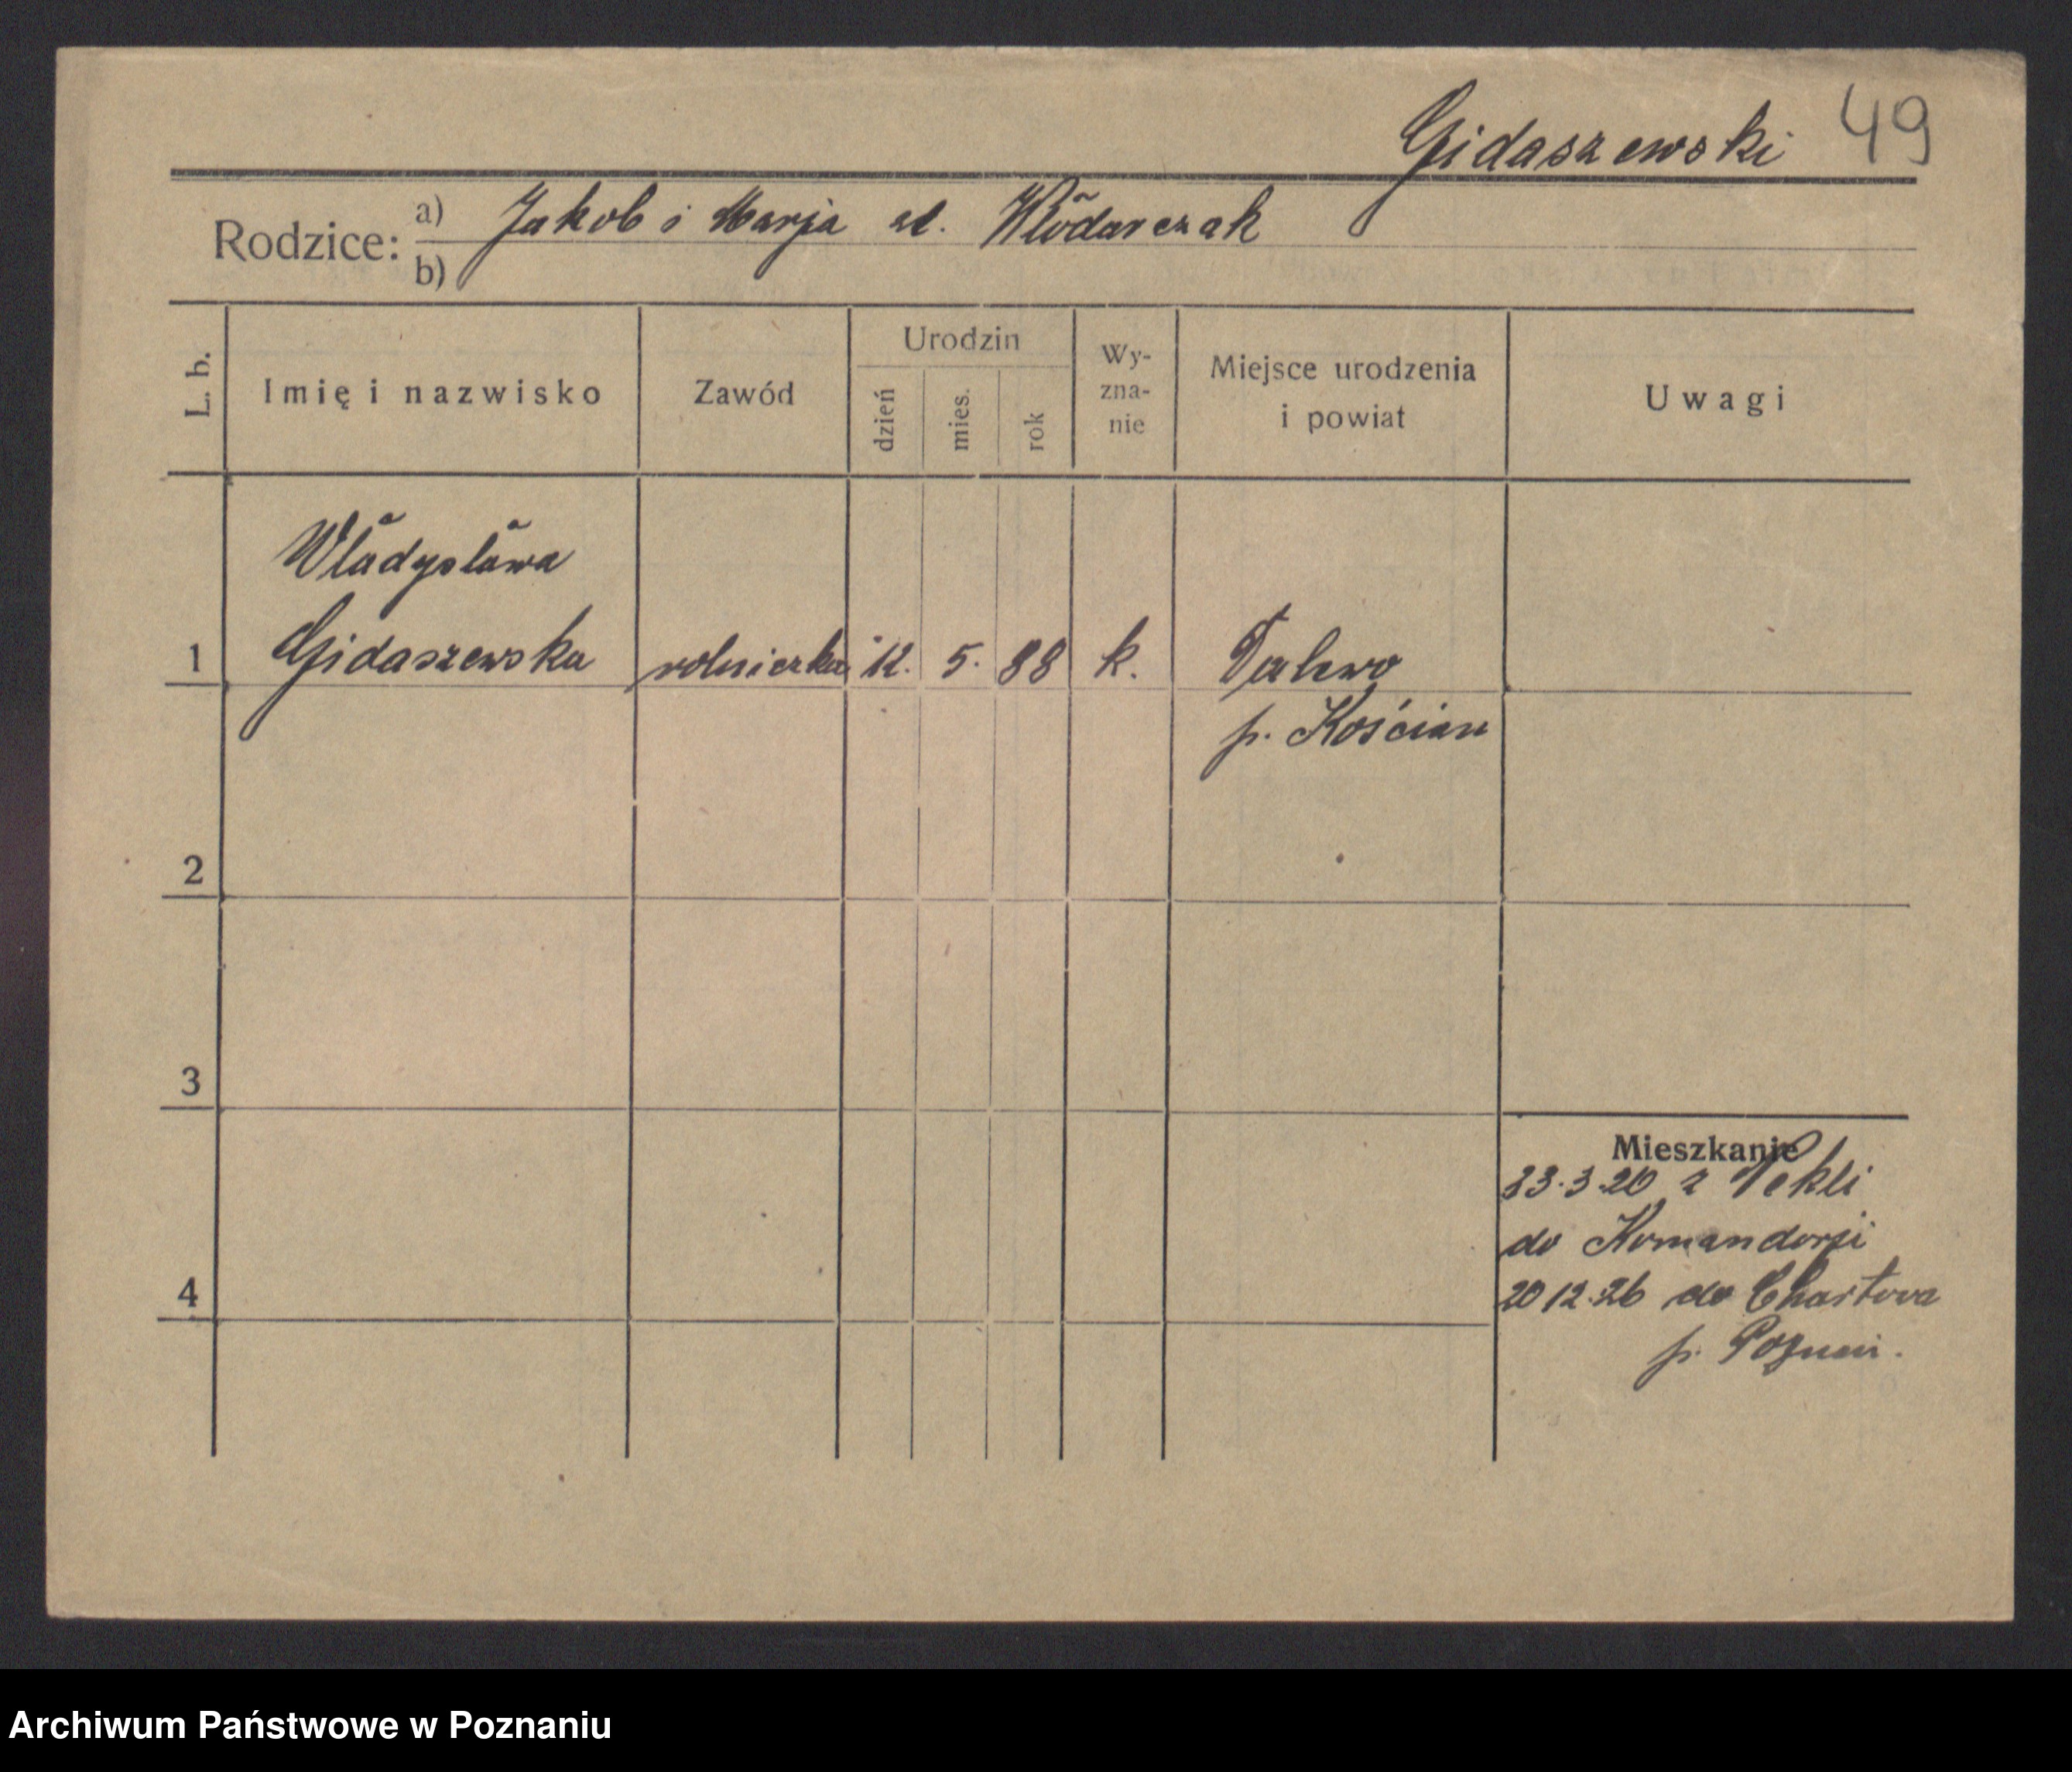 Gidaszewski 49
Rodzice: a) Jakob i Marja zd. Włodarczak
b)
L. b. Imię i nazwisko Zawód Urodzin dzień mies. rok Wyznanie Miejsce urodzenia i powiat Uwagi
Władysława
1 Gidaszewska rolniczka 12. 5. 88 k.
p. Kościan
2
3
4
Mieszkanie
z Tekli
do Komandorji
20 12.26 do Chartova
p. Poznań.
Archiwum Państwowe w Poznaniu